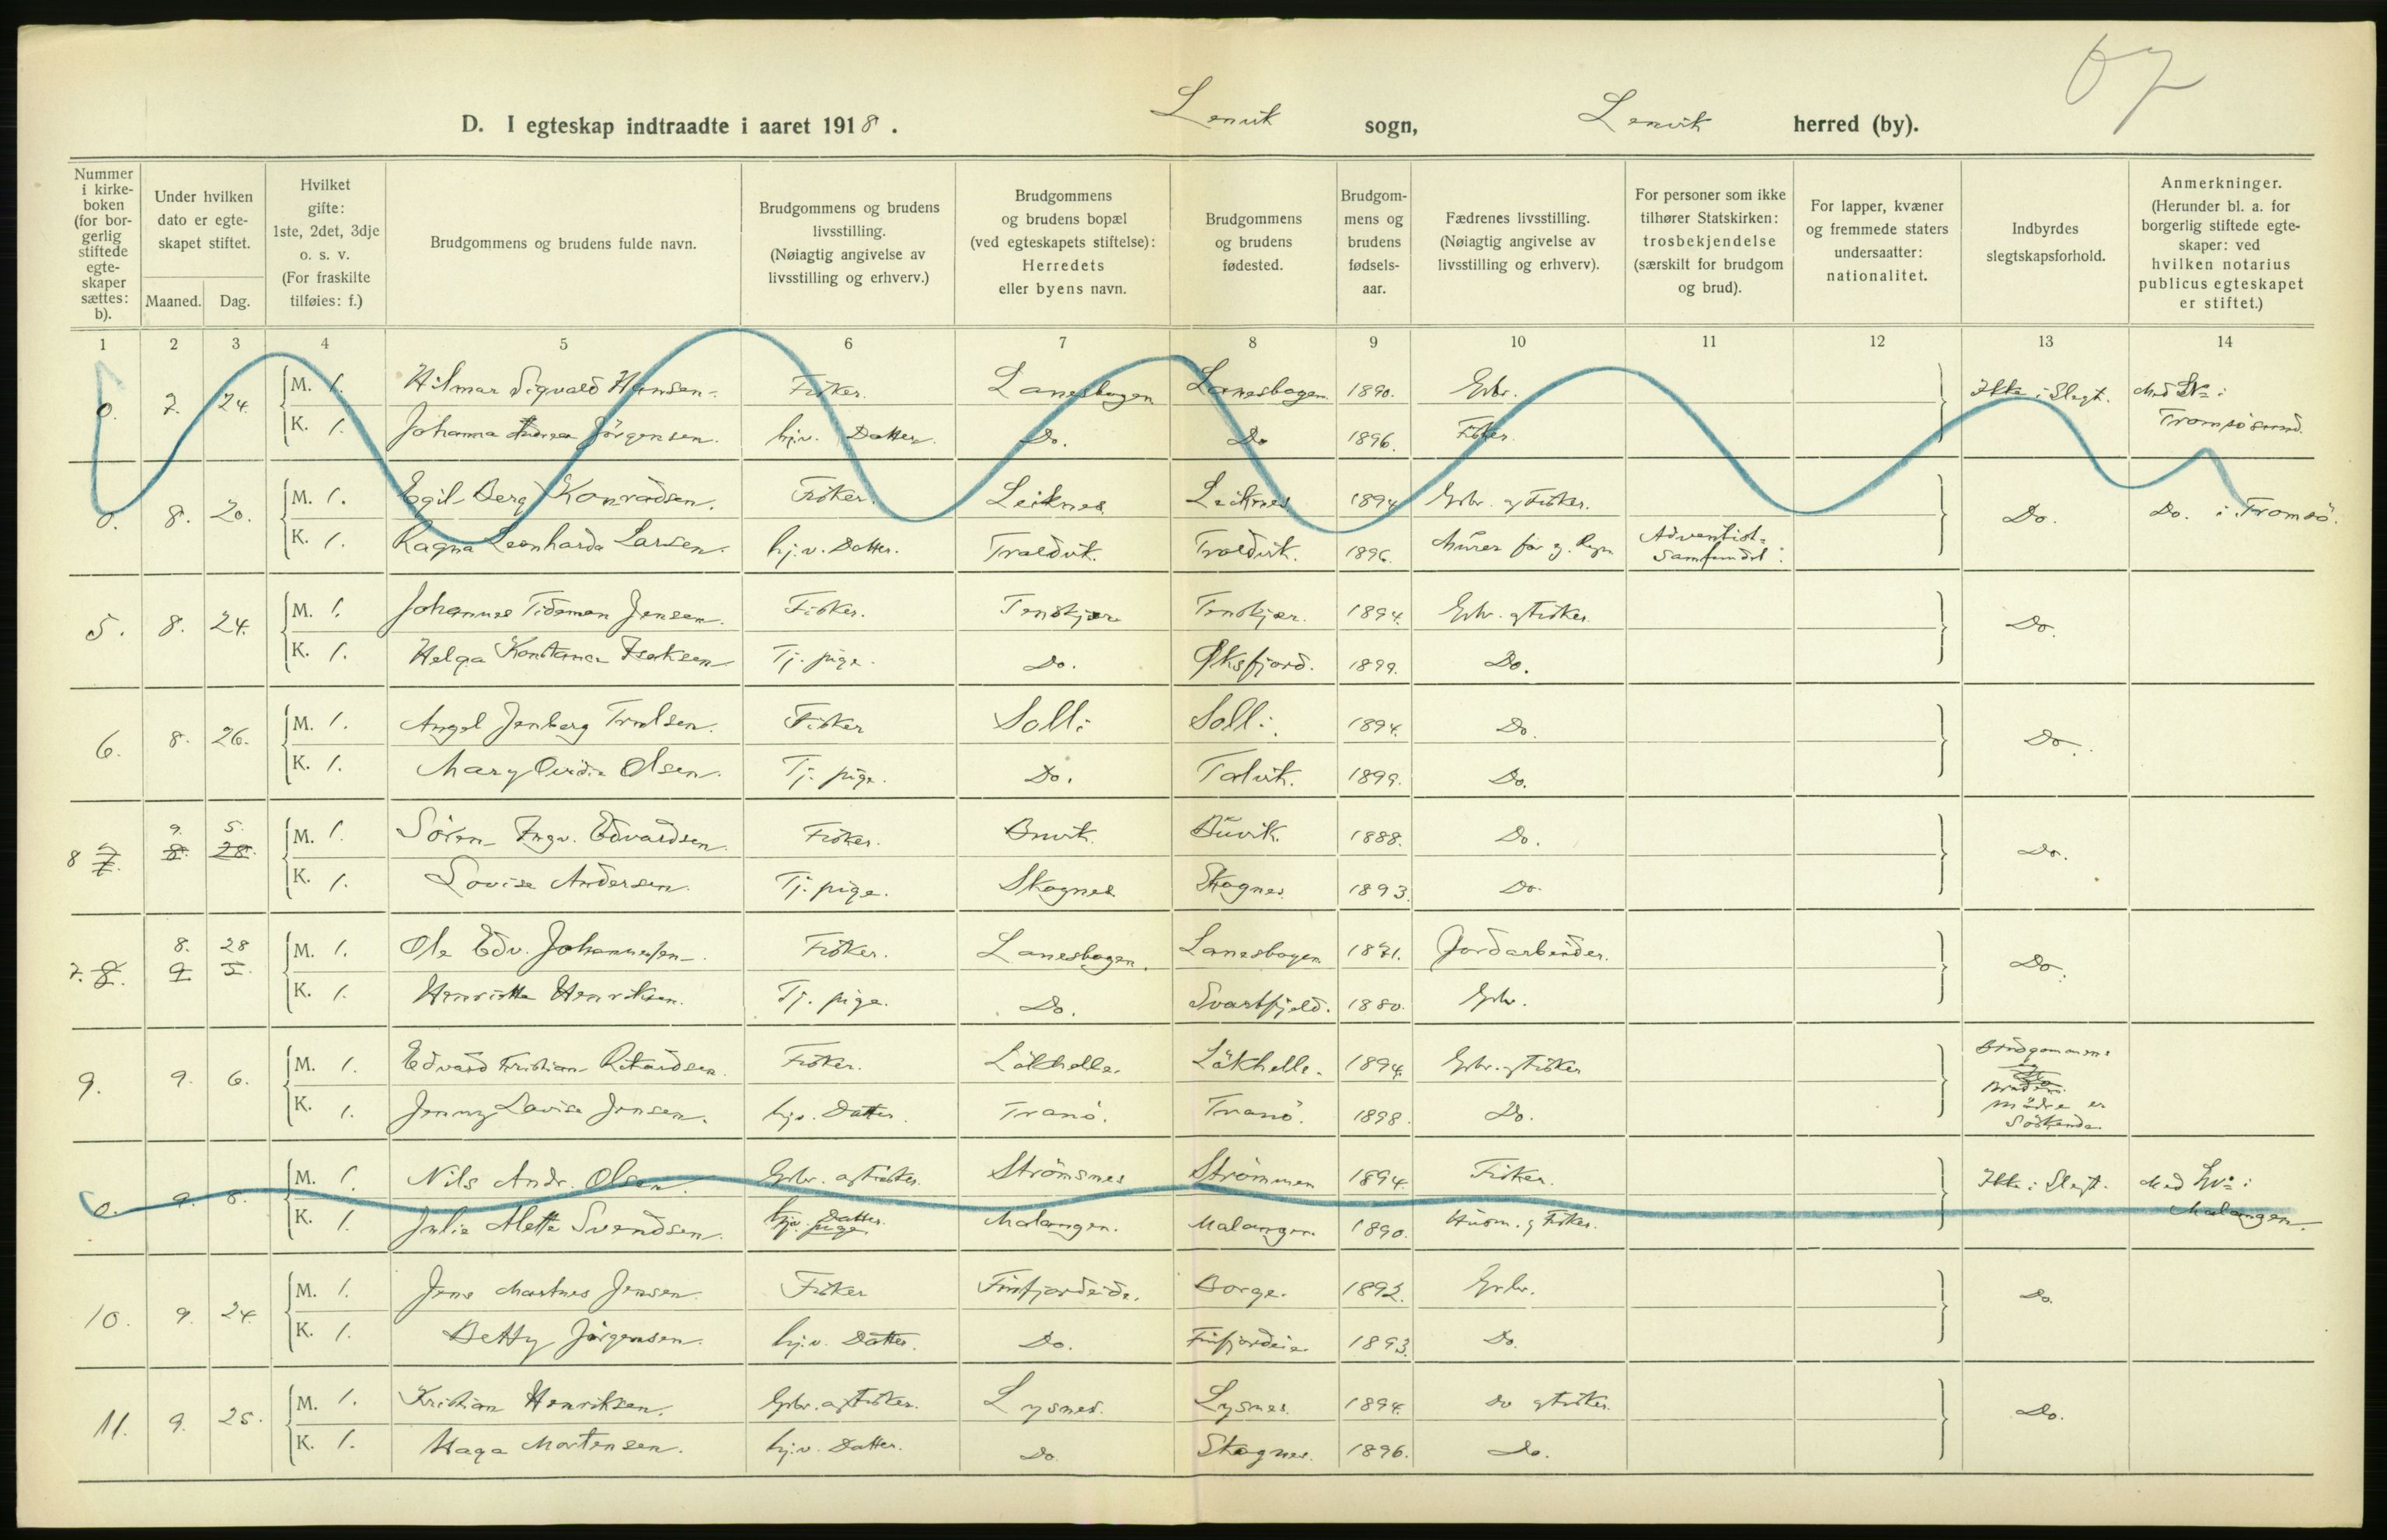 67
D. I egteskap indtraadte i aaret 1918. Lenvik sogn, Lenvik herred (by).
Nummer i kirkeboken (for borgerlig stiftede egteskaper sættes: b).
Under hvilken dato er egteskapet stiftet.
Maaned. Dag.
Hvilket gifte: 1ste, 2det, 3dje o. s. v. (For fraskilte tilføies: f.)
Brudgommens og brudens fulde navn.
Brudgommens og brudens livsstilling. (Nøiagtig angivelse av livsstilling og erhverv.)
Brudgommens og brudens bopæl (ved egteskapets stiftelse): Herredets eller byens navn.
Brudgommens og brudens fødested.
Brudgommens og brudens fødselsaar.
Fædrenes livsstilling. (Nøiagtig angivelse av livsstilling og erhverv).
For personer som ikke tilhører Statskirken: trosbekjendelse (særskilt for brudgom og brud).
For lapper, kvæner og fremmede staters undersaatter: nationalitet.
Indbyrdes slegtskapsforhold.
Anmerkninger. (Herunder bl. a. for borgerlig stiftede egteskaper: ved hvilken notarius publicus egteskapet er stiftet.)
1 2 3 4 5 6 7 8 9 10 11 12 13 14
0. 7. 24. M. 1. Hilmar Sigvald Hansen. Fisker. Lanesbogen Lanesbogen 1890. Gbr. Ikke i Slegt. Med Lv= i
K. 1. Johanna Andrea Jörgensen. hj.v. Datter. Do. Do 1896. Fisker. Tromsösund.
0. 8. 20. M. 1. Egil Berg Konradsen. Fisker. Leiknes Leiknes 1894 Gbr. og Fisker. Do. Do. i Tromsö.
K. 1. Ragna Leonharda Larsen. hj.v. Datter. Traldvik. Traldvik. 1896. Murer Adventist=samfundet.
5. 8. 24. M. 1. Johannes Tideman Jensen. Fisker. Tenskjær Tenskjær. 1894. Gbr. og Fisker. Do.
K. 1. Helga Konstance Isaksen Tj. pige. Do. Øksfjord. 1899. Do.
6. 8. 26. M. 1. Angel Jenberg Trulsen. Fisker Solli Solli. 1894. Do. Do.
K. 1. Mary Ovidia Olsen. Tj. pige. Do. Talvik. 1899. Do.
8 7. 9. 8. 5. 28. M. 1. Sören Ingv. Edvardsen. Fisker. Buvik. Buvik. 1888. Do. Do.
K. 1. Lovise Andersen. Tj. pige. Skognes Skognes. 1893. Do.
7. 8. 8. 9 28 5. M. 1. Ole Edv. Johannessen. Fisker. Lanesbogen. Lanesbogen 1871. Jordarbeider. Do.
K. 1. Henriette Henriksen. Tj. pige. Do. Svartfjeld. 1880. Gbr.
9. 9. 6. M. 1. Edvard Kristian Rikardsen. Fisker. Låkhelle. Låkhelle. 1894. Gbr. og Fisker Brudgommens
og Brudens
K. 1. Jenny Lovise Jensen. hj.v. Datter. Tranö. Tranö. 1898. Do. mödre er
Söskende
0. 9. 8. M. 1. Nils Andr. Olsen. Gbr. og Fisker. Strömsnes Strömmen 1894. Fisker. Ikke i Slegt. Med Lv= i
K. 1. Julie Alette Svendsen. hj.v. Datter. Tj. pige. Malangen. Malangen. 1890. Husm. og Fisker. Malangen.
10. 9. 24. M. 1. Jens Martnus Jensen. Fisker Finfjordeide. Borge. 1892. Gbr. Do.
K. 1. Betty Jörgensen. hj.v. Datter. Do. Finfjordeide 1893. Do.
11. 9. 25. M. 1. Kristian Henriksen. Gbr. og Fisker. Lysnes. Lysnes. 1894. Do og Fisker. Do.
K. 1. Haga Mortensen. hj.v. Datter. Do Skognes. 1896. Do.